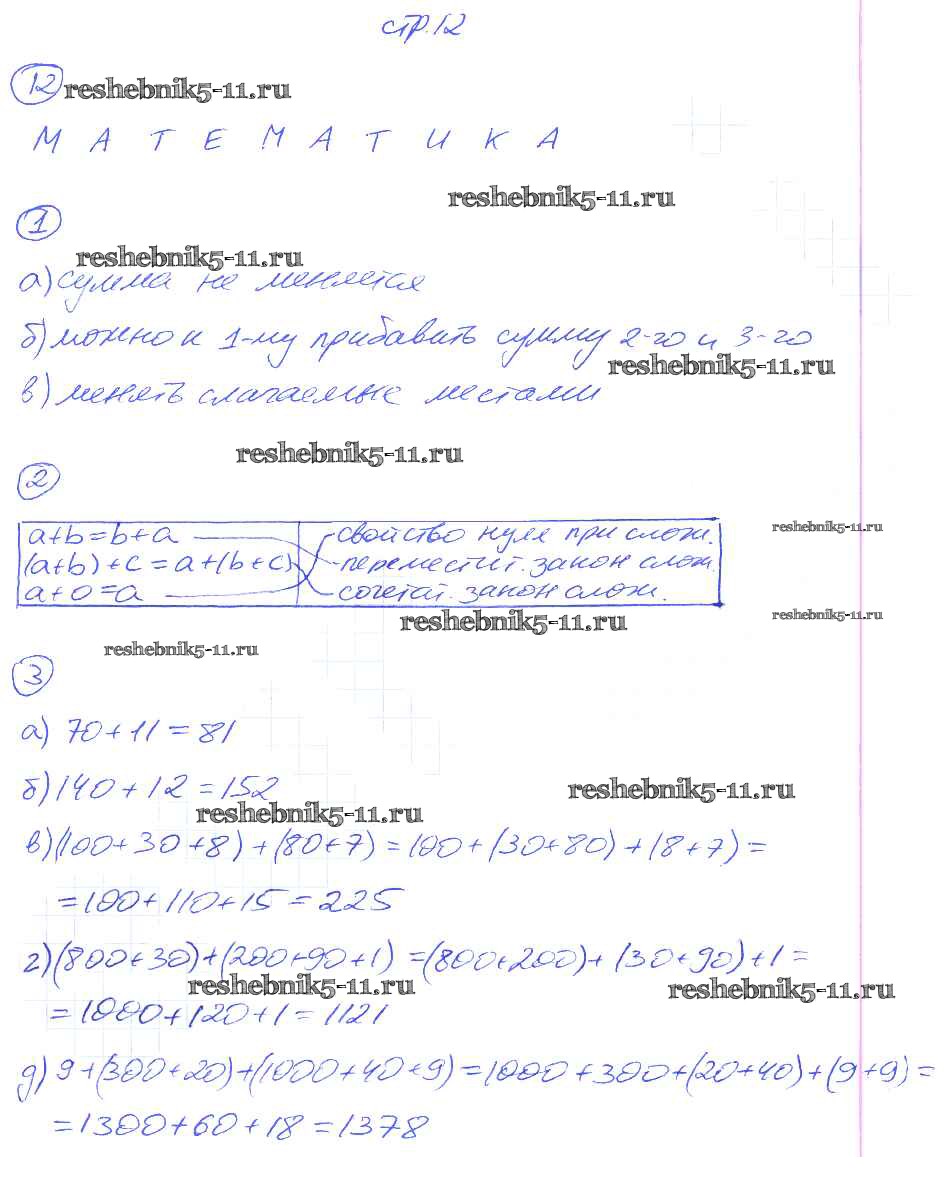 стр.12
12 reshebnik5-11.ru
М А Т Е М А Т И К А
reshebnik5-11.ru
1
reshebnik5-11.ru
а) сумма не меняется
б) можно к 1-му прибавить сумму 2-го и 3-го
reshebnik5-11.ru
в) менять слагаемые местами
reshebnik5-11.ru
2
a+b=b+a свойство нуля при слож.
reshebnik5-11.ru
(a+b)+c=a+(b+c) перемест. закон слож.
a+0=a сочетат. закон слож.
reshebnik5-11.ru
reshebnik5-11.ru
reshebnik5-11.ru
3
а) 70+11=81
б) 140+12=152
reshebnik5-11.ru
reshebnik5-11.ru
в) (100+30+8)+(80+7)=100+(30+80)+(8+7)=
=100+110+15=225
г) (800+30)+(200+90+1)=(800+200)+(30+90)+1=
reshebnik5-11.ru
reshebnik5-11.ru
=1000+120+1=1121
д) 9+(300+20)+(1000+40+9)=1000+300+(20+40)+(9+9)=
=1300+60+18=1378